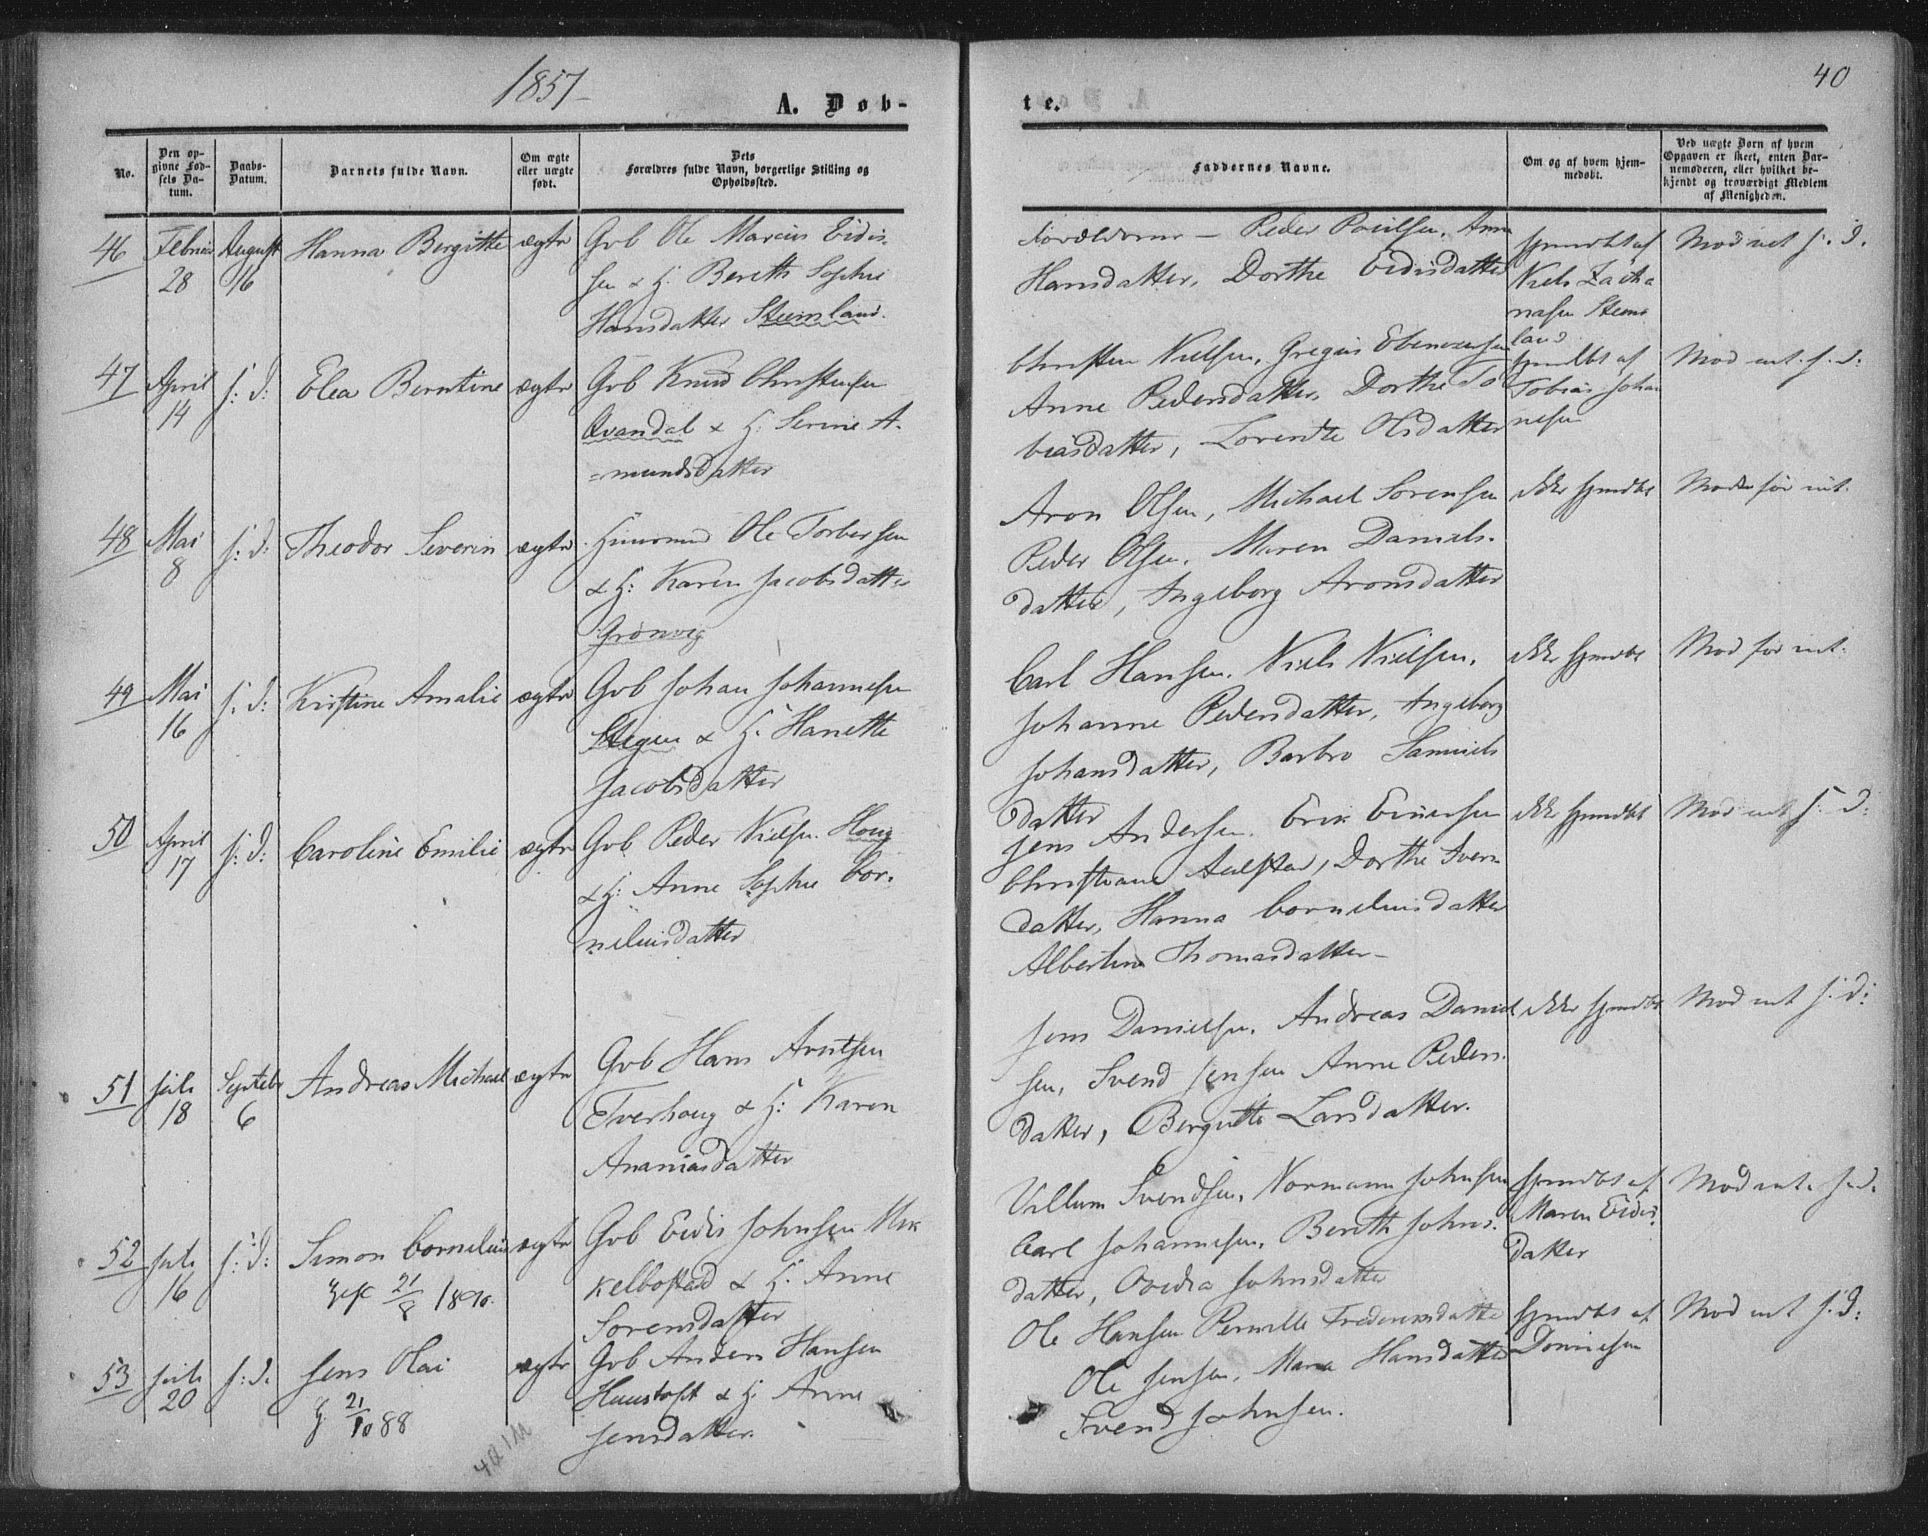 1857
A. Døb-
te.
40
No.
Den op-
givne Fød-
sels Da-
tum.
Daabs-
Datum.
Barnets fulde Navn.
Om ægte
eller uægte
født.
Dets
Forældres fulde Navn, borgerlige Stilling og
Opholdssted.
Faddernes Navne.
Om og af hvem hjem-
medøbt.
Ved uægte Børn af hvem
Opgaven er skeet, enten Bar-
nemoderen, eller hvilket be-
kjendt og troværdigt Medlem
af Menigheden.
46
28
August
16
Hanna Bergitte
ægte
Gvb Ole Marcius Eidis-
sen & H. Bereth Sophie
Hansdatter Steinland.
Forældrerne — Peder Poulsen, Anne
Hansdatter, Dorthe Eidisdatter
hjmdbt af
Niels Zacha
Mod int s. d.
47
April
14
s: d:
Elea Berntine
ægte
Gvb Knud Christensen
Qvandal & H: Serine A-
=mundsdatter
Christen Nielsen, Gregus Ebenezersen
Anne Pedersdatter, Dorthe To
biasdatter, Lorentze Olsdatter
hjmdbt af
Tobias Johan
nesen
Mod int. s. d:
48
Mai
8
s: d:
Theodor Severin
ægte
Huusmd Ole Torbersen
& H: Karen Jacobsdatter
Grønvig
Aron Olsen, Michael Sørensen
Peder Olsen, Maren Daniels-
datter, Ingeborg Aronsdatter
ikke hjmdbt
Moder før int.
49
Mai
16
s: d:
Kirstine Amalie
ægte
Gvb Johan Johannesen
Stegen & H: Hanette
Jacobsdatter
Carl Hansen, Niels Nielsen,
Johanne Pedersdatter, Ingeborg
Johansdatter, Barbro Samuels
datter
ikke hjmdbt
Mod før int.
50
April
17
s: d:
Caroline Emilie
ægte
Gvb Peder Nielsen Houg
& H: Anne Sophie Cor-
neliusdatter
Jens Andersen, Erik Einersen
Christiane Aalstad, Dorthe Ivers
datter, Hanna Corneliusdatter
Albertine Thomasdatter-
ikke hjmdbt
Mod int s: d:
51
Juli
18
Septebr
6
Andreas Michael
ægte
Gvb Hans Arntsen
Tverhoug & H: Karen
Ananiasdatter
Jens Danielsen, Andreas Daniel
sen, Svend Jensen Anne Peders-
datter, Bergitte Larsdatter.
ikke hjmdbt
Mod int s: d:
52
Juli
16
s: d:
Simon Cornelius
21/8 1890.
ægte
Gvb Eidis Johnsen Mik
kelbostad & H: Anne
Sørensdatter
Villum Svendsen, Normann Johnsen
Carl Johannesen, Bereth Johns-
datter, Ovedia Johnsdatter
hjmdbt af
Maren Eidis-
datter
Mod int. s. d.
53
Juli
20
s: d.
Jens Olai
21/10 88
ægte
Gvb Anders Hansen
& H: Anne
Jensdatter.
Ole Hansen Pernille Frederiksdatter
Ole Jensen, Maria Hansdatter
Svend Johnsen.
hjmdbt af
Mod int s: d: